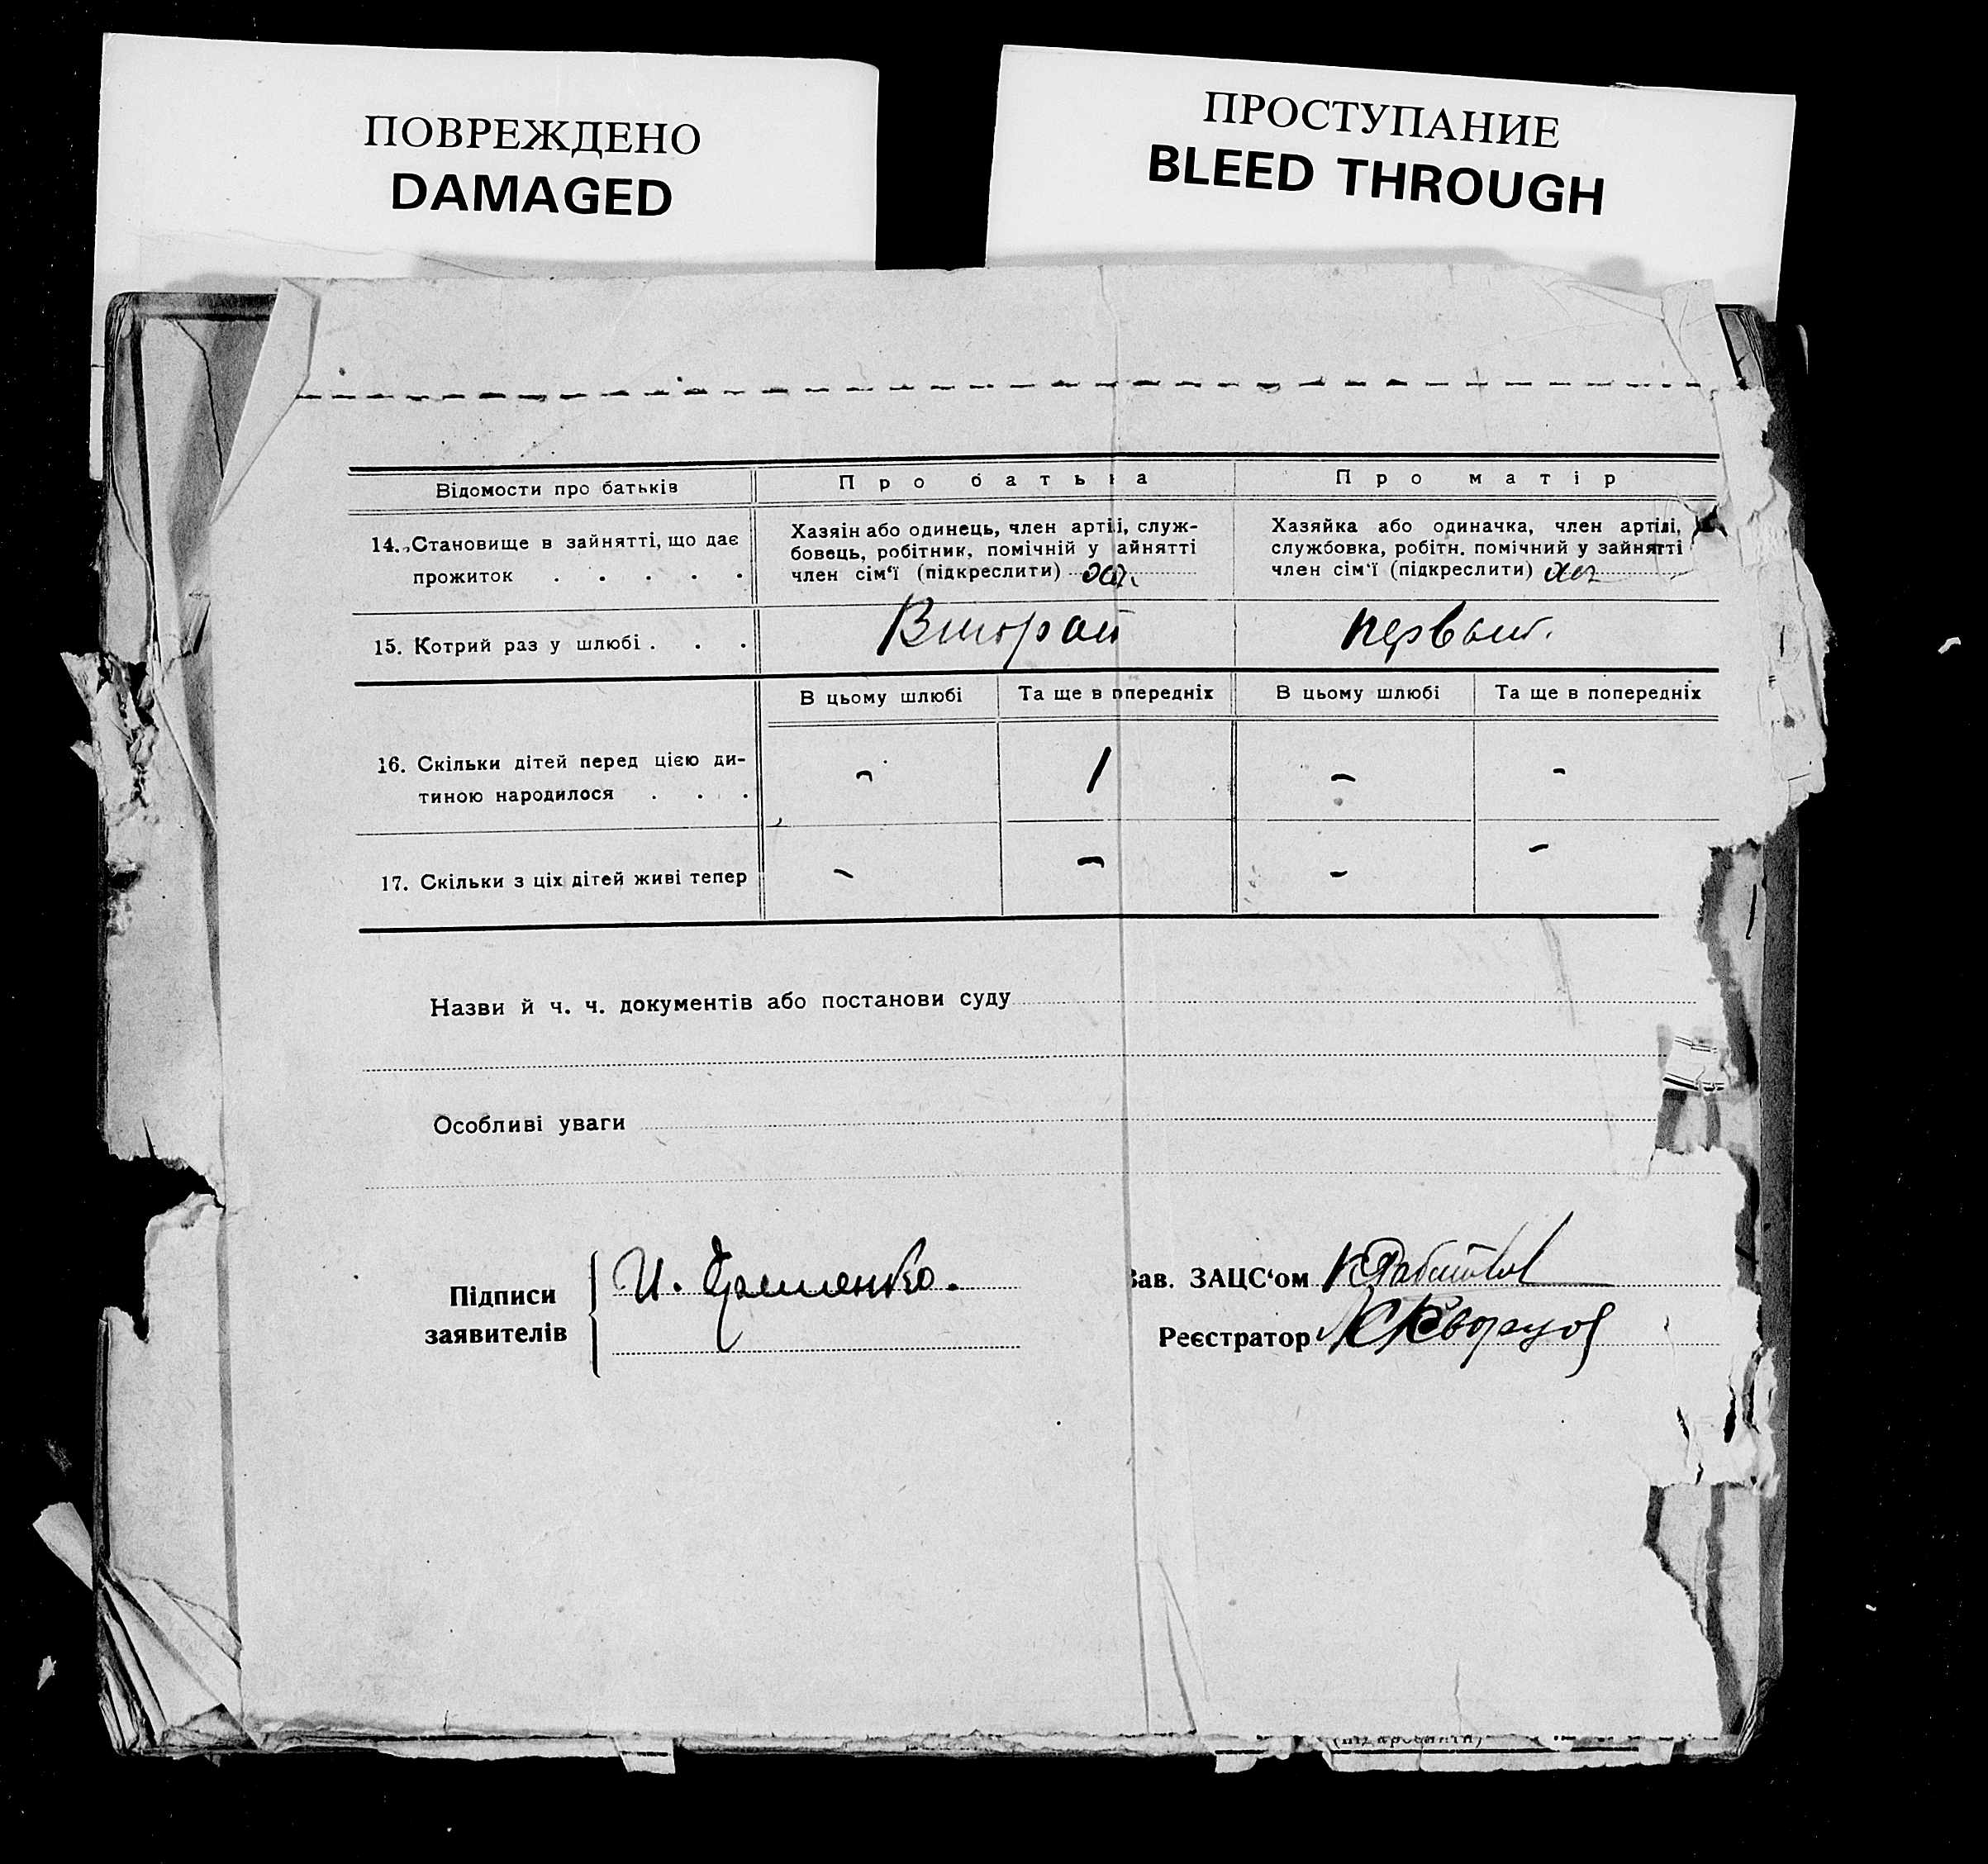 ПОВРЕЖДЕНО
DAMAGED
ПРОСТУПАНИЕ
BLEED THROUGH
Відомости про батьків
Про батька
Про матір
14. Становище в зайнятті, що дає
прожиток . . . . .
Хазяін або одинець, член артілі, служ-
бовець, робітник, помічній у айнятті
член сім‘ї (підкреслити) хаз.
Хазяйка або одиначка, член артілі,
службовка, робітн. помічний у зайнятті
член сім‘ї (підкреслити) хаз
15. Котрий раз у шлюбі . . .
Второй
первый.
В цьому шлюбі
Та ще в опередніх
В цьому шлюбі
Та ще в попередніх
16. Скільки дітей перед цією ди-
тиною народилося . . .
-
1
-
-
17. Скільки з ціх дітей живі тепер
-
-
-
-
Назви й ч. ч. документів або постанови суду
Особливі уваги
Підписи
заявителів
И.
Зав. ЗАЦС‘ом
Реєстратор